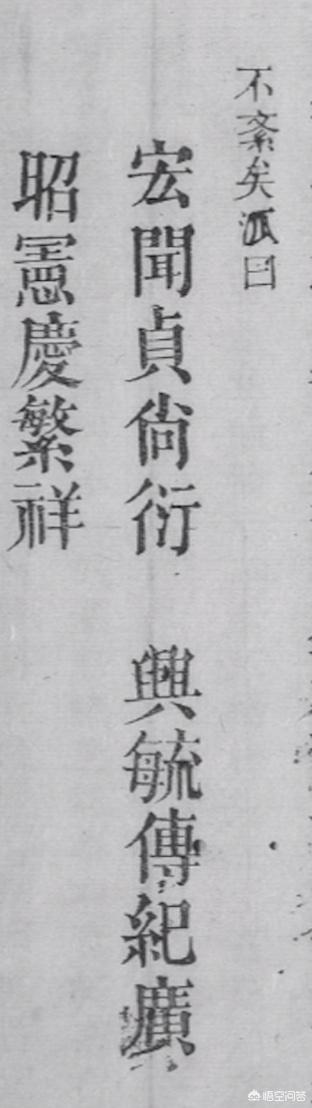 不紊矣派曰
宏聞貞尙衍 興毓傳紀廣
昭憲慶繁祥
悟空问答